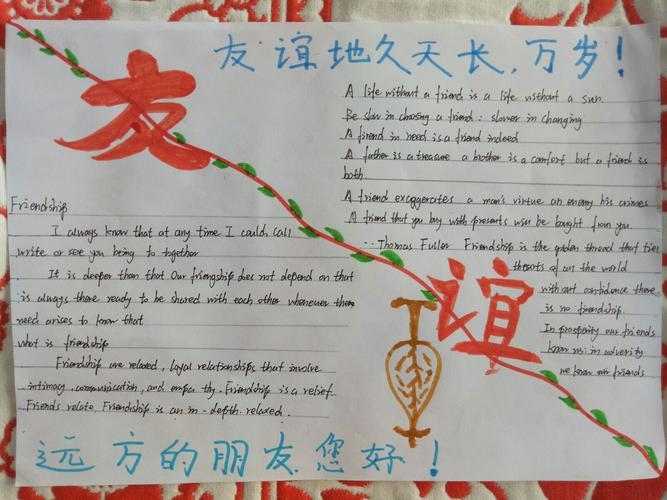 友谊地久天长,万岁!
友
A life without a friend is a life without a sun.
Be slow in choosing a friend: slower in changing
A firend in need is a friend indeed
A father is a treasure a brother is a comfort but a friend is
both.
A friend exaggerates a man's virtue an enemy his crimes
A friend that you buy with presents will be bought from you.
--Thomas Fuller Friendship is the golden thread that ties
thearts of all the world
without confidance there
is no friendship.
In prosperity our friends
know us: in adverity
we know our friends
谊
Friendship
I always know that at any time I could call
write or see you being to together
It is deeper than that Our friengship does not depend on that
is always there ready to be shared with each other whenever there
need arises to know that
what is friendship
Friendship are relaxed, loyal relationships that involve
intimacy, communication, and empathy. Friendship is a relief.
Friends relate. Friendship is an in-depth. relaxed.
远方的朋友您好!